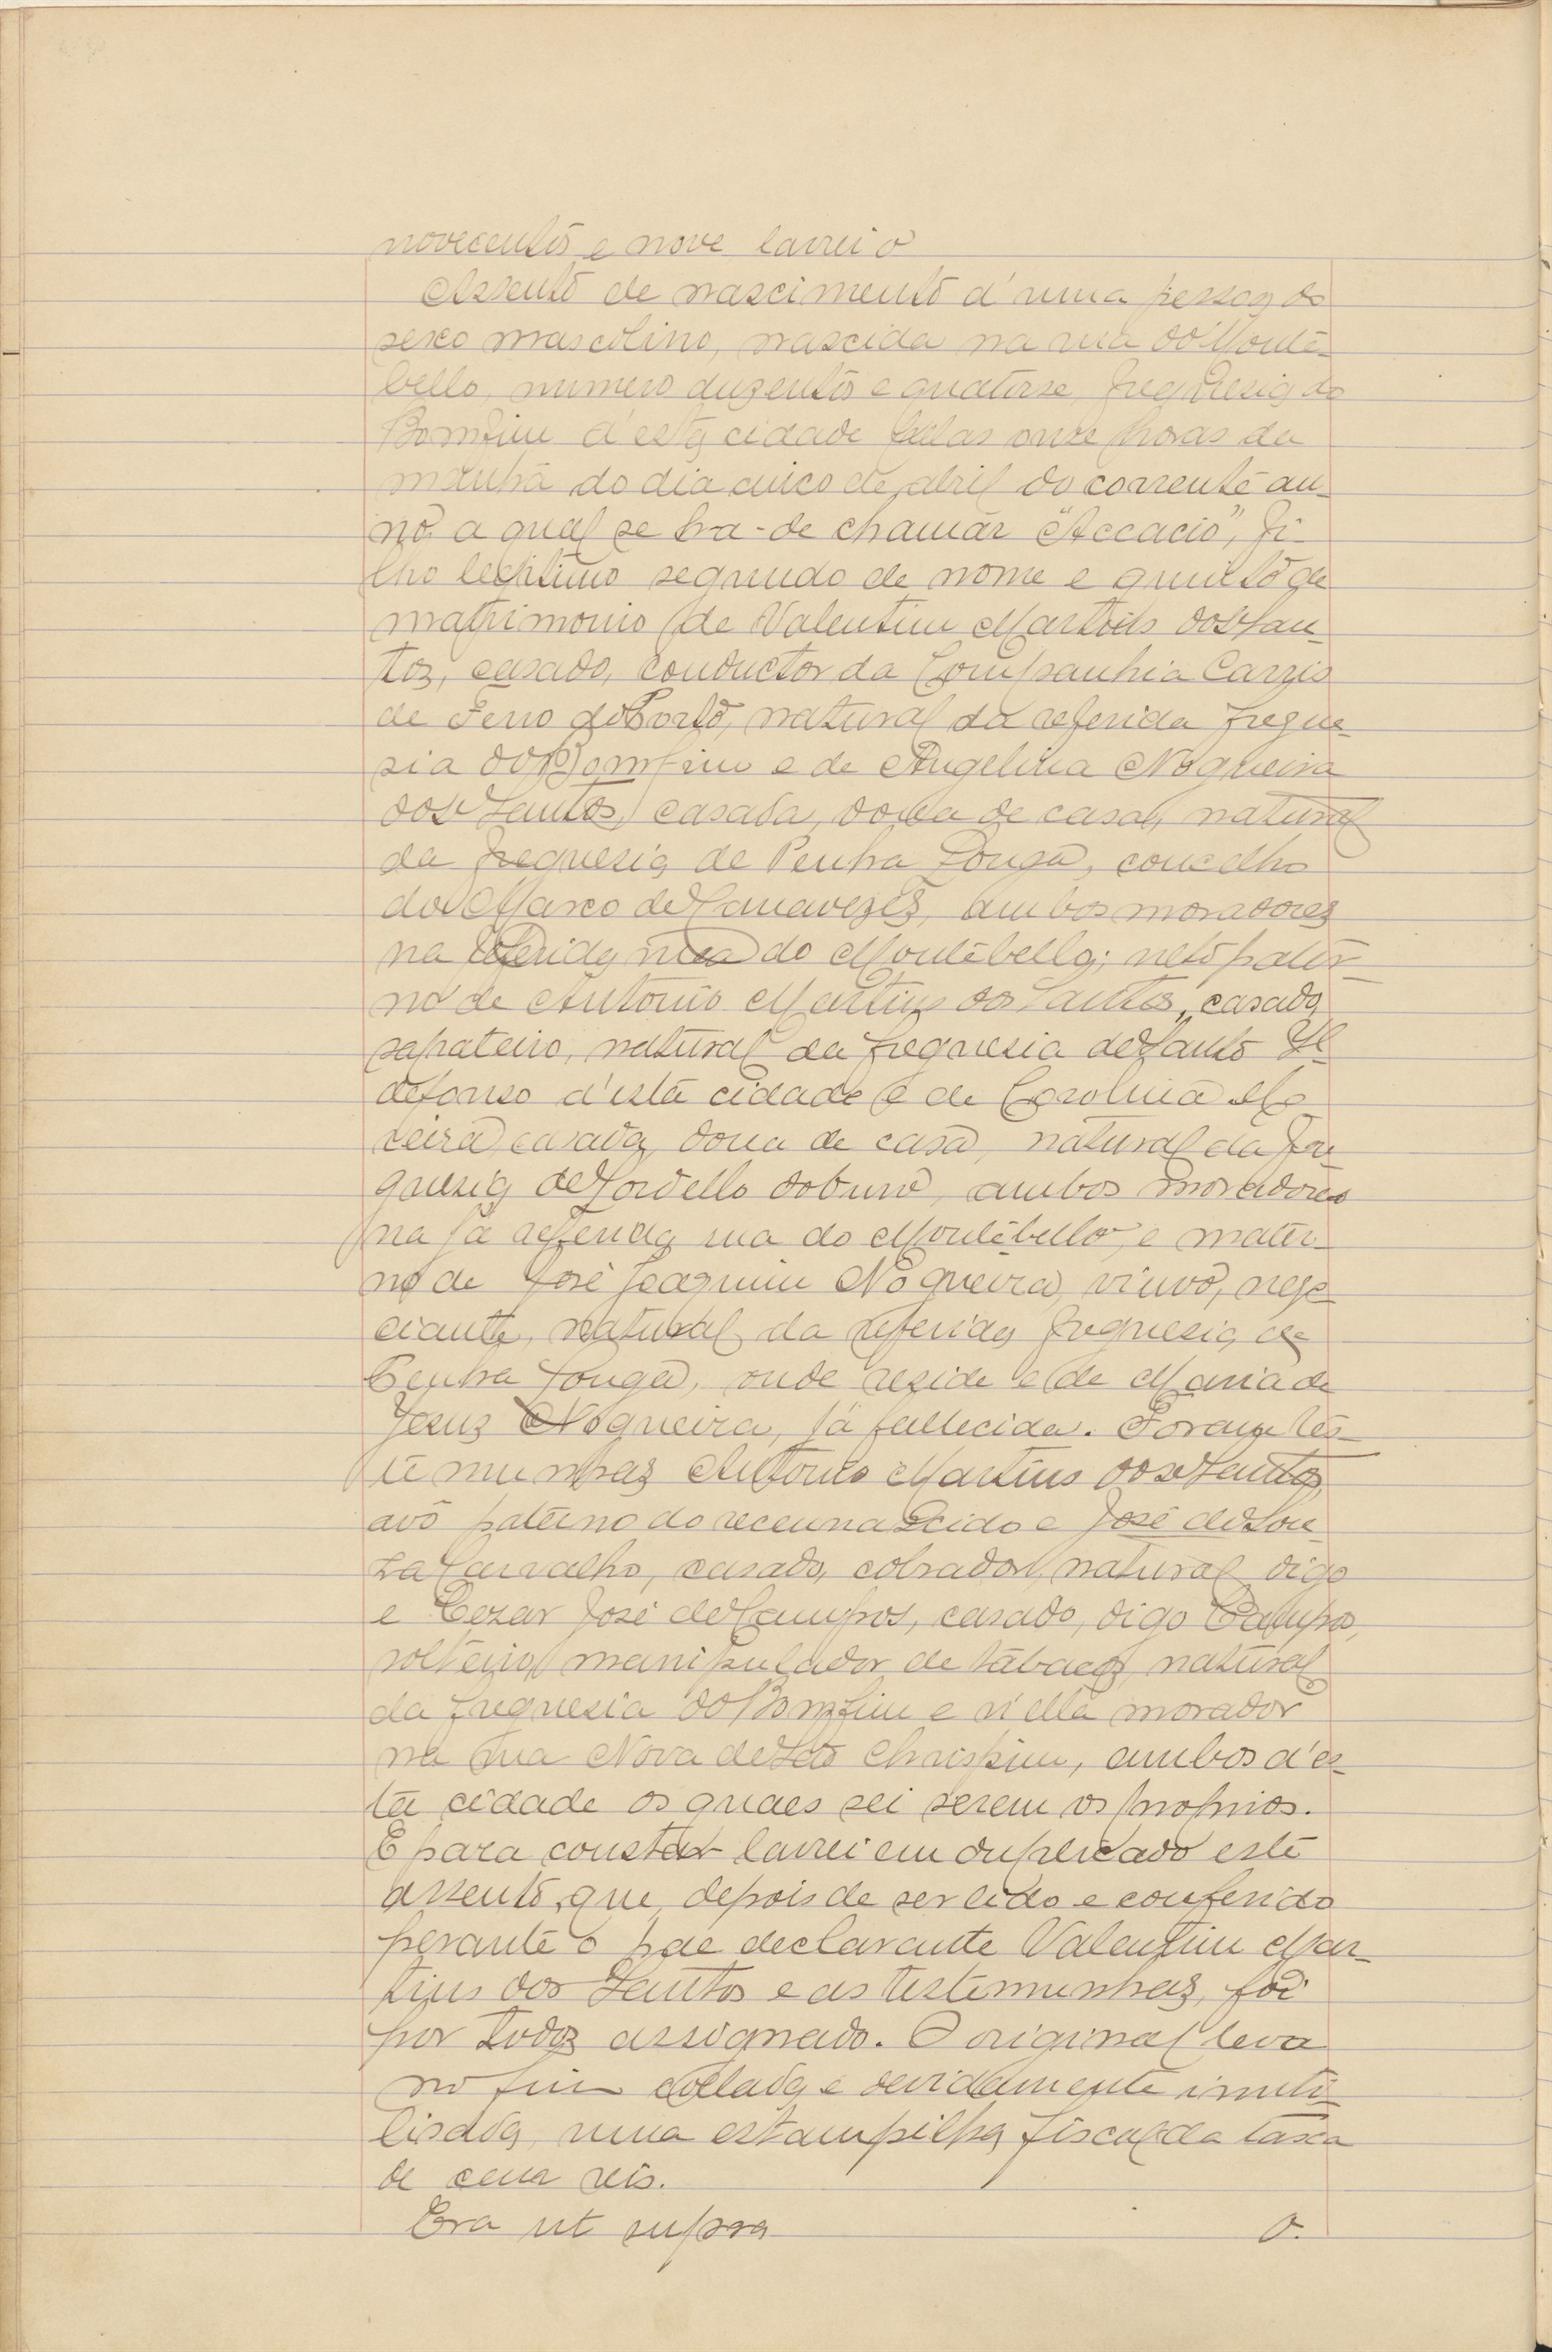 novecentos e nove lavrei o
Assento de nascimento d'uma pessoa do
sexo mascolino, nascida na rua do Monte-
bello, numero duzentos e quatorse, freguesia do
Bomfim d'esta cidade pelas onze horas da
manhã do dia cinco de abril do corrente an-
no a qual se ha-de chamar "Accacio", fi-
lho legitimo segundo de nome e quinto de
matrimonio de Valentim Martins dos San-
tos, casado, conductor da Companhia Carris
de Ferro do Porto, natural da referida fregue-
sia do Bomfim e de Angelina Nogueira
dos Santos, casada, dona de casa, natural
da freguesia de Penha Longa, concelho
do Marco de Canavezes, ambos moradores
na referida rua do Montebello; neto pater-
no de Antonio Martins dos Santos, casado,
sapateiro, natural da freguesia de Santo Il-
defonso d'esta cidade e de Carolina Mo
reira, casada, dona de casa, natural da fre-
guesia de Lordello do Ouro, ambos moradores
na já referida rua do Montebello, e mater-
no de José Joaquim Nogueira, viuvo, nego-
ciante, natural da referida freguesia de
Penha Longa, onde reside e de Maria de
Jesus Nogueira, já fallecida. Foram tes-
temunhas Antonio Martins dos Santos,
avô paterno do recemnascido e José de Sou-
za Carvalho, casado, cobrador, natural digo
e Cezar José de Campos, casado, digo Campos,
solteiro, manipulador de tabacos, natural
da freguesia do Bomfim e n'ella morador
na rua Nova de São Chrispim, ambos d'es-
ta cidade os quaes sei serem os proprios.
E para constar lavrei em duplicado este
assento, que, depois de ser lido e conferido
perante o pae declarante Valentim Mar-
tins dos Santos e as testemunhas, foi
por todos assignado. O original leva
no fim collada e devidamente inuti-
lisada, uma estampilha fiscal da taxa
de cem reis.
Era ut supra O.